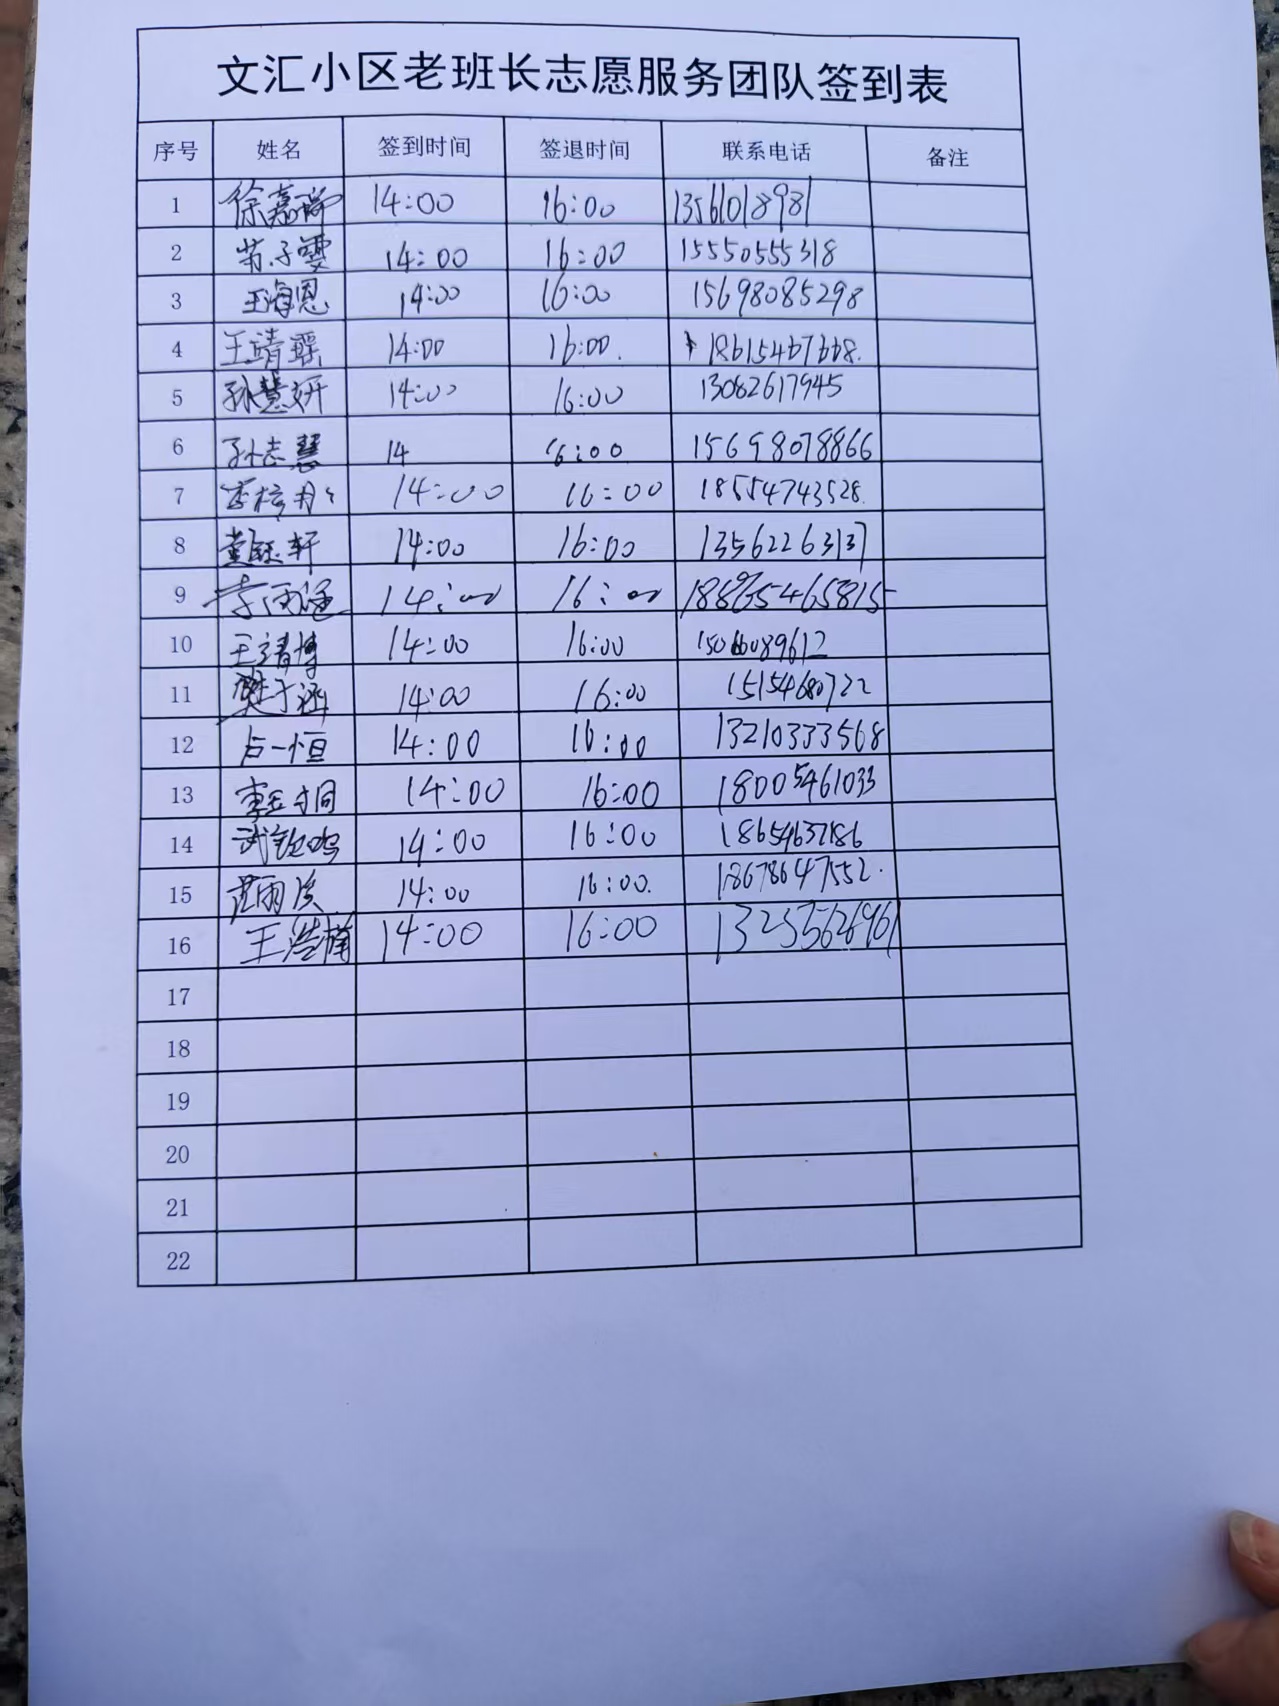 文汇小区老班长志愿服务团队签到表
序号 姓名 签到时间 签退时间 联系电话 备注
1 徐嘉瑞 14:00 16:00 13561018981
2 子雯 14:00 16:00 15550555318
3 王海恩 14:00 16:00 15698085298
4 王靖瑶 14:00 16:00.
5 孙慧妍 14:00 16:00 13082617945
6 孙志慧 14 16:00 15698078866
7 14:00 16:00 18554743528.
8 黄钰轩 14:00 16:00 13562263137
9 李雨涵 14:00 16:00
10 王靖博 14:00 16:00
11 樊子涵 14:00 16:00 15154680722
12 卢一恒 14:00 16:00 13210333568
13 14:00 16:00 18005461033
14 14:00 16:00
15 14:00 16:00. 18678647552.
16 王浩楠 14:00 16:00
17
18
19
20
21
22